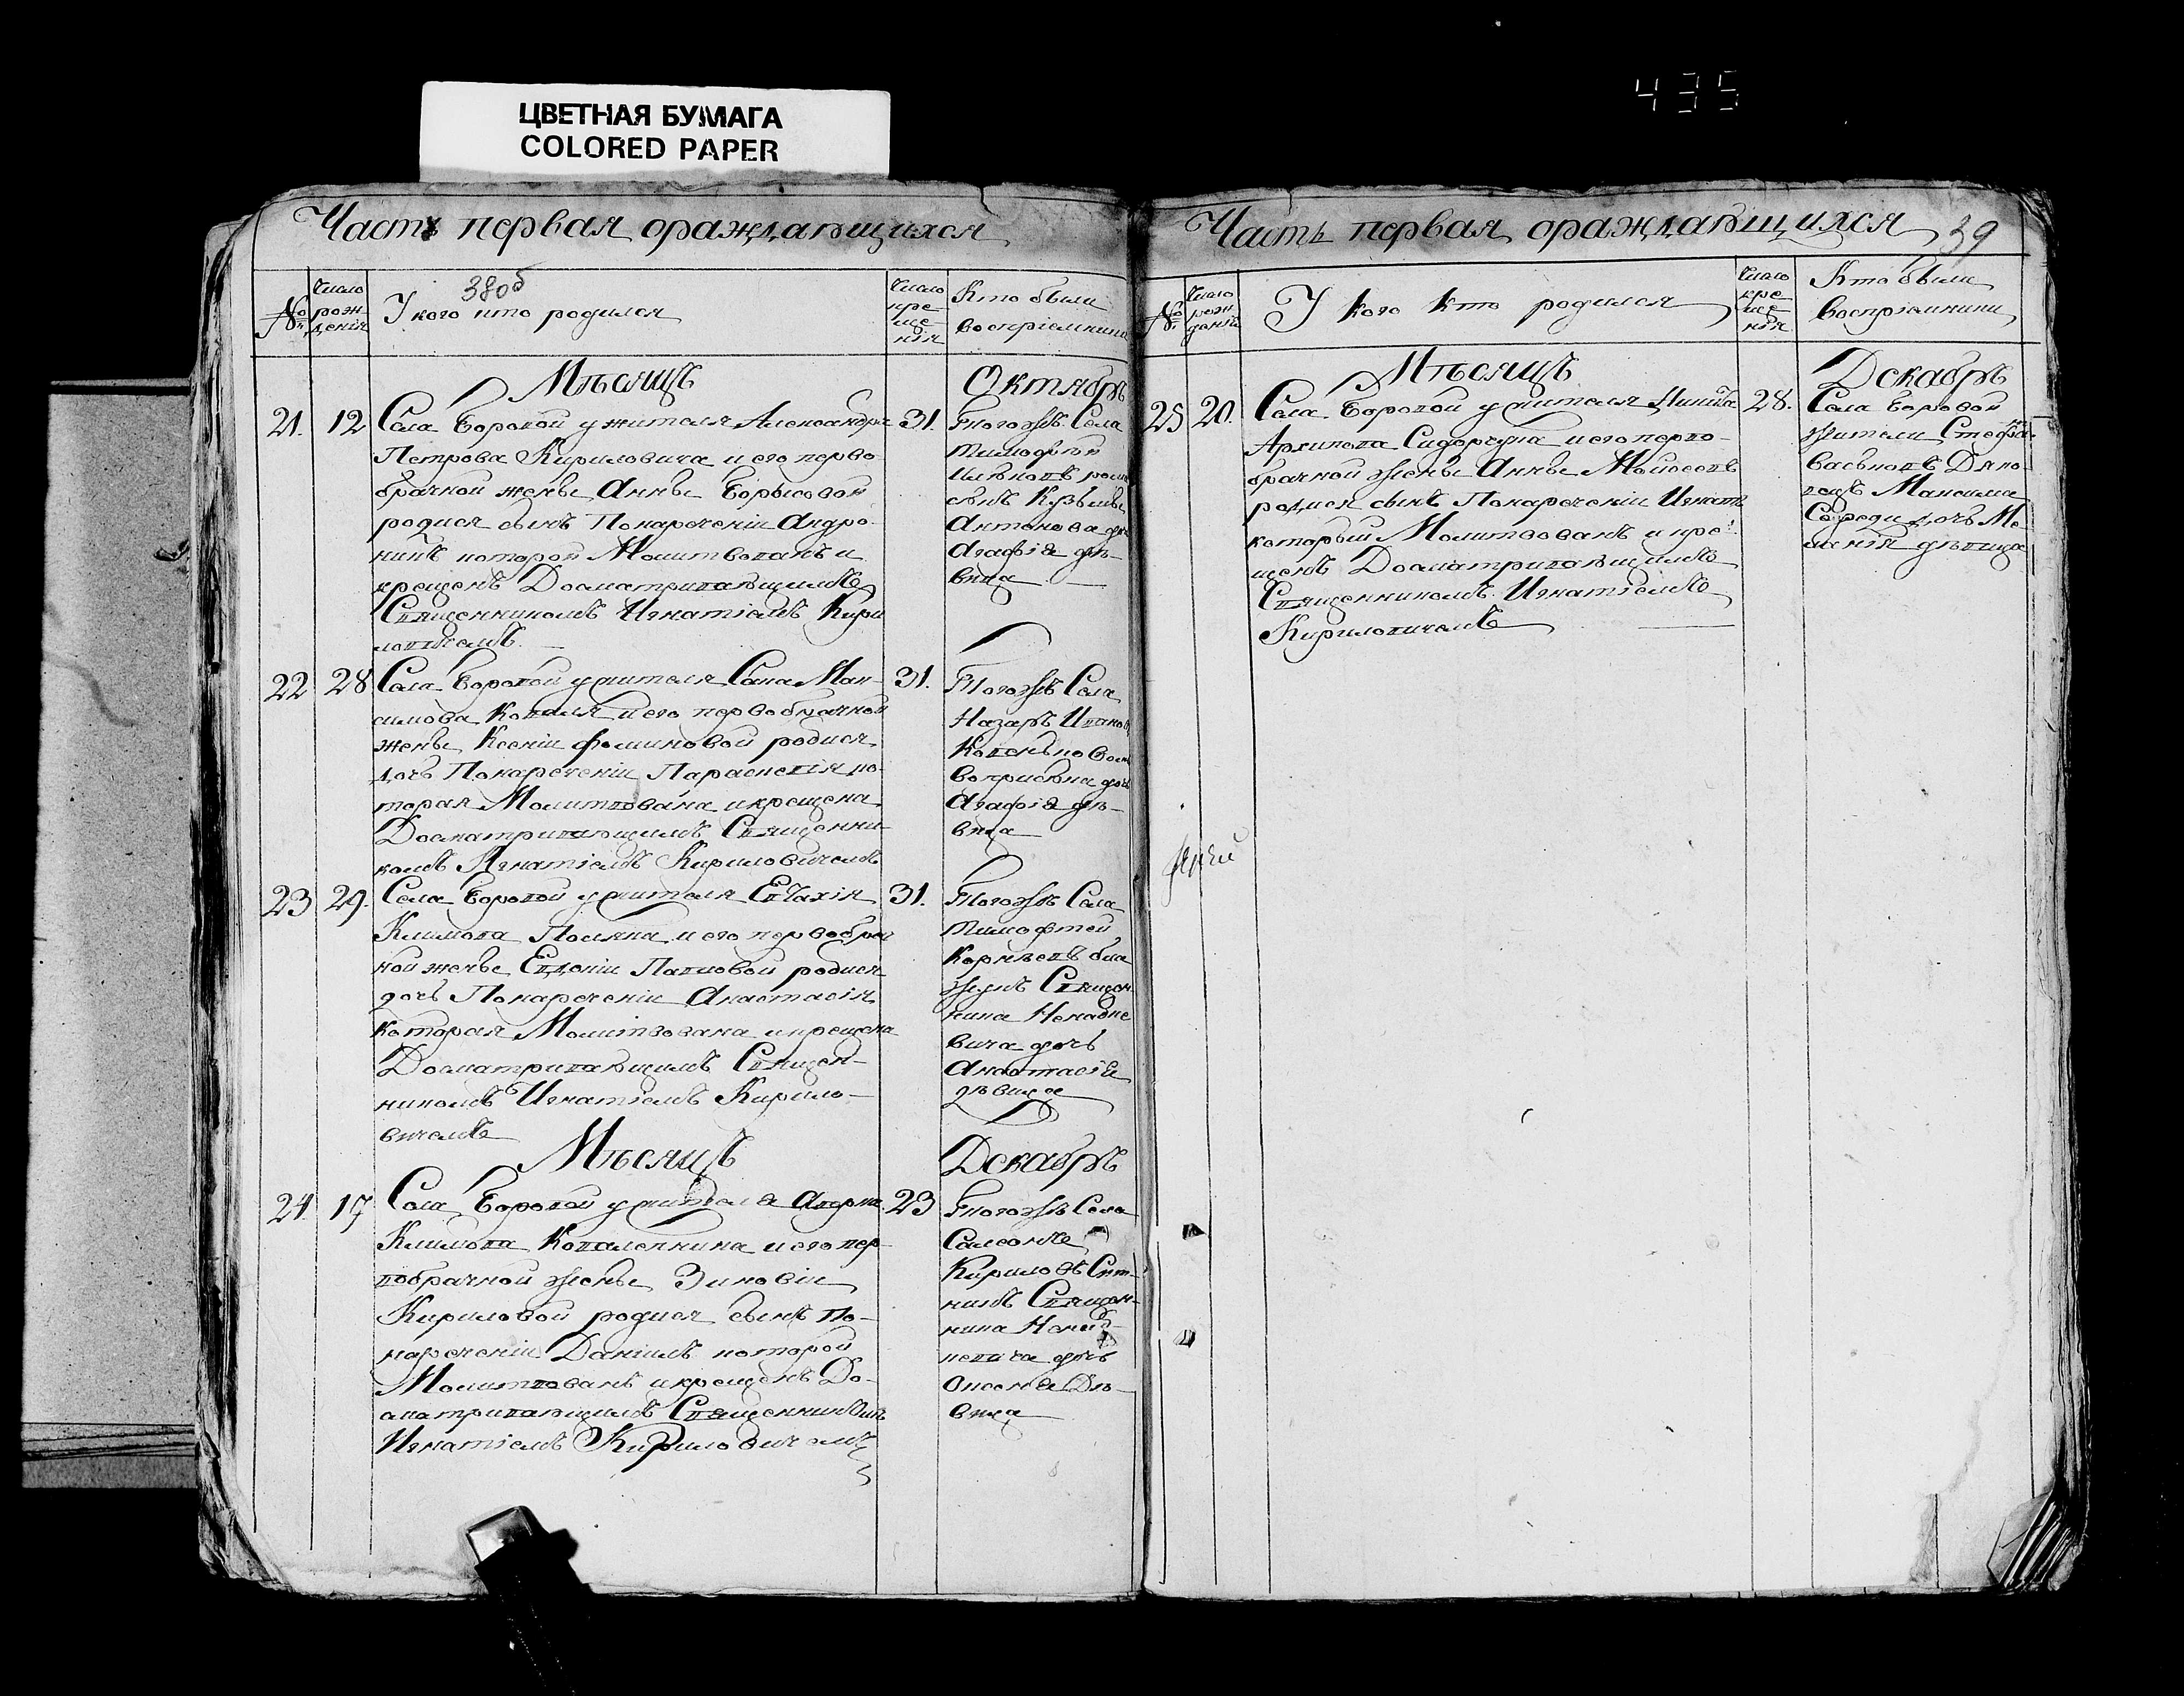 ЦВЕТНАЯ БУМАГА
COLORED PAPER
435
Часть первая ораждающихся
38об
№
Число рождения
У кого кто родился
Число крещения
Кто были
воспріемники
Мѣсяцъ
Октябрь
21.
12
Села Боровой у жителя Александра
Петрова Кириловича и его перво
брачной женѣ Анны Борысовой
родися сынъ Понареченіи Андро
никъ которой Молитвованъ и
крещенъ Досматривающимъ
Священникомъ Игнатіемъ Кири
ловичемъ
31.
Тогожъ Села
Тимофей
Антонова
Агафіа дѣ-
вица
22
28
Села Боровой у жителя Савы Мак-
симова Коваля и его первобрачной
женѣ Ксеніи Фоминовой родися
дочь Понареченіи Параскевія ко-
торая Молитвована и крещена
Досматривающимъ Священни-
комъ Игнатіемъ Кириловичемъ
31.
Тогожъ Села
Назаръ Иванов
Агафіа дѣ-
вица
23
29.
Села Боровой у жителя Евтихія
Климова Посяна и его первобрач
ной женѣ Евдокіи Павловой родися
дочь Понареченіи Анастасія
которая Молитвована и крещена
Досматривающимъ Священ-
никомъ Игнатіемъ Кирило-
вичемъ
31.
Тогожъ Села
Тимофтей
Корнѣевъ
Священ
ника
вича дочь
Анастасіа
дѣвица
Мѣсяцъ
Декабрь
24.
17
Села Боровой у жителя
Климова Коваленкина и его пер-
вобрачной женѣ Зиновіи
Кириловой родися сынъ По-
нареченіи Даніилъ которой
Молитвованъ и крещенъ До-
сматривающимъ Священникомъ
Игнатіемъ Кириловичемъ
23
Тогожъ Села
Самсонъ
Кириловъ Сит-
никъ Священ-
ника
дочь
Дѣ-
вица
Часть первая ораждающихся
39
№
Число рожденія
У кого кто родился
Число крещенія
Кто были
воспріимники
Мѣсяцъ
Декабрь
25
20.
Села Боровой у жителя Никиты
Архипова Сидоренка и его перво-
брачной женѣ Анны Мойсеевой
родися сынъ Понареченіи Игнатъ
который Молитвованъ и кре-
щенъ Досматривающимъ
Священникомъ Игнатіемъ
Кириловичемъ
28.
Села Боровой
жители Стефан
Васильевъ
Максима
дочь Ме-
ланія дѣвица